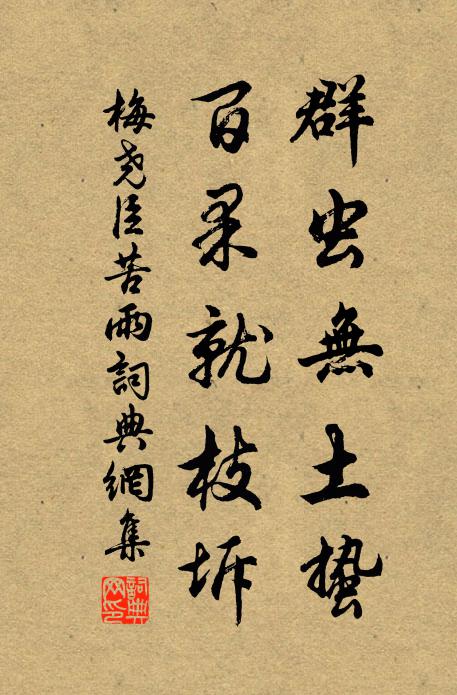 群虫無土蟄
百果就枝坼
梅堯臣苦雨詞典網集
詞典網印